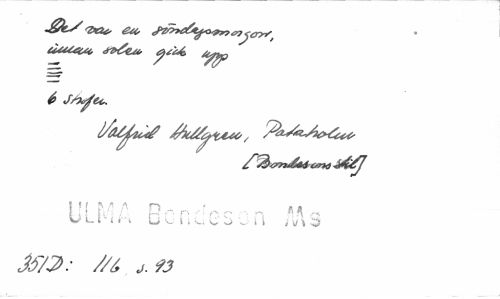 Det var en söndagsmorgon,
innan solen gick upp
6 strofer.
Valfrid Hullgren, Pataholm
[Bondesons stil]
ULMA Bondeson Ms
351D: 116 s. 93